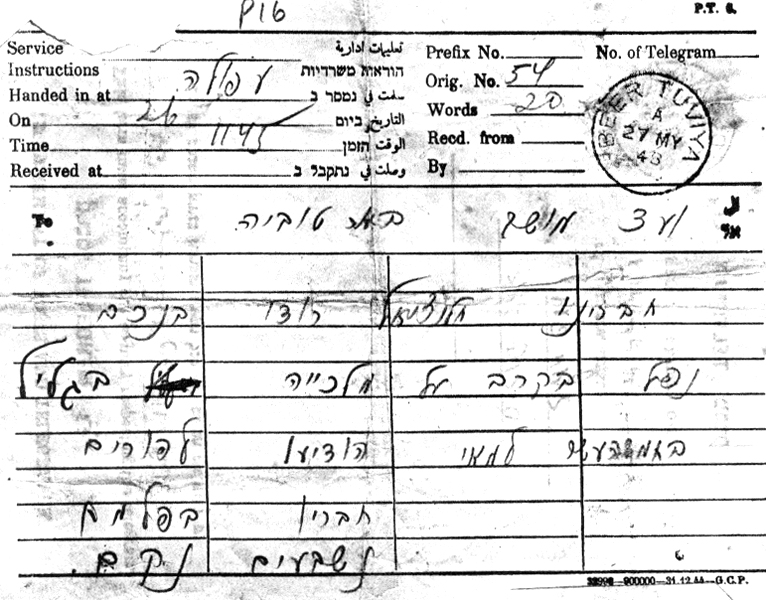 P.T. 6.
Service تعليمات ادارية Prefix No. No. of Telegram
Instructions הוראות משרדיות Orig. No. 54
Handed in at עפולה سلمت في נמסר ב Words 20
On 26 التاريخ ביום Recd. from
Time 1145 الوقت הזמן By
Received at وصلت في נתקבל ב
BEER TUVIYA
A
27 MY
48
To ועד מושב באר טוביה الى אל
חברינו רודי בנכם
נפל בקרב על מלכייה בגליל
למאי הודיעו להורים
חבריו בפלמח
נשבעים נקם.
900000—31.12.44—G.C.P.